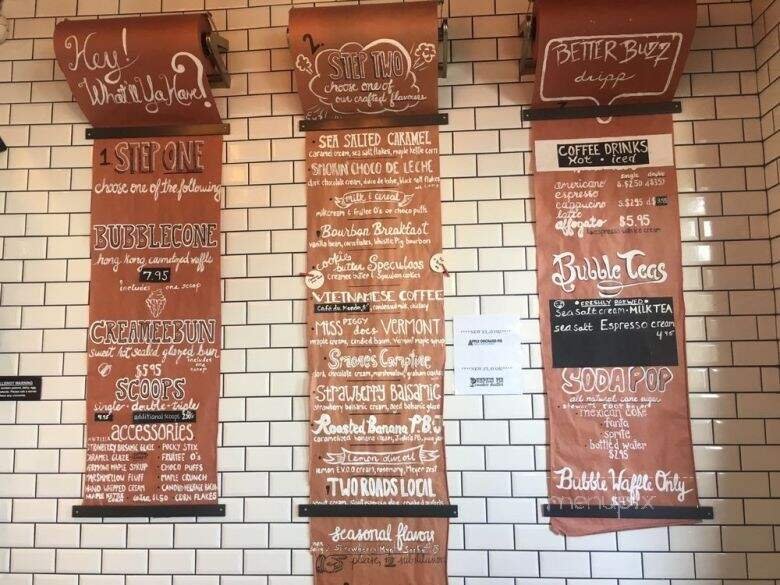 Hey!
What'll Ya Have?
1 STEP ONE
choose one of the following
BUBBLECONE
hong kong caramelized waffle
7.95
includes one scoop
CREAMEEBUN
sweet hot sealed glazed bun
includes one scoop
$5.95
SCOOPS
single · double · triple
4.95
additional scoops
accessories
NUTELLA · POCKY STIX
STRAWBERRY BALSAMIC GLAZE · FRUITEE O's
CARAMEL GLAZE · CHOCO PUFFS
VERMONT MAPLE SYRUP · MAPLE CRUNCH
MARSHMALLOW FLUFF · CANDIED VERMONT BACON
HAND WHIPPED CREAM · CORN FLAKES
MAPLE KETTLE CORN
extra $1.50
2
STEP TWO
choose one of
our crafted flavours
· SEA SALTED CARAMEL
caramel cream, sea salt flakes, maple kettle corn
SMOKIN CHOCO DE LECHE
dark chocolate cream, dulce de leche, black salt flakes
milk & cereal
milkcream & fruitee O's or choco puffs
· Bourbon Breakfast
vanilla bean, corn flakes, Whistle Pig bourbon
cookie butter Speculoos
creamee butter & Speculoos cookies
VIETNAMESE COFFEE
Café du Monde, condensed milk, chicory
· MISS PIGGY does VERMONT
maple cream, candied bacon, Vermont maple syrup
Smores Campfire
dark chocolate cream, marshmallow, graham cracker
· Strawberry BALSAMIC
strawberry balsamic cream, aged balsamic glaze
Roasted Banana P.B.
caramelized banana cream,
Lemon olive oil
lemon E.V.O.O cream, rosemary, Meyer zest
TWO ROADS LOCAL
seasonal flavor
please,
****NEW FLAVOR****
APPLE ORCHARD PIE
****NEW FLAVOR****
PUMPKIN PIE
BETTER BUZZ
dripp
COFFEE DRINKS
Hot · iced
single double
americano s.$2.50
espresso
cappucino s.$2.95
latte
affogato $5.95
espresso with ice cream
Bubble Teas
· FRESHLY BREWED ·
Sea Salt cream · MILK TEA
sea salt Espresso cream
4.95
SODA POP
all natural cane sugar
root beer
· mexican coke
· fanta
· sprite
· bottled water
$2.95
Bubble Waffle Only
ALLERGY WARNING
menupix